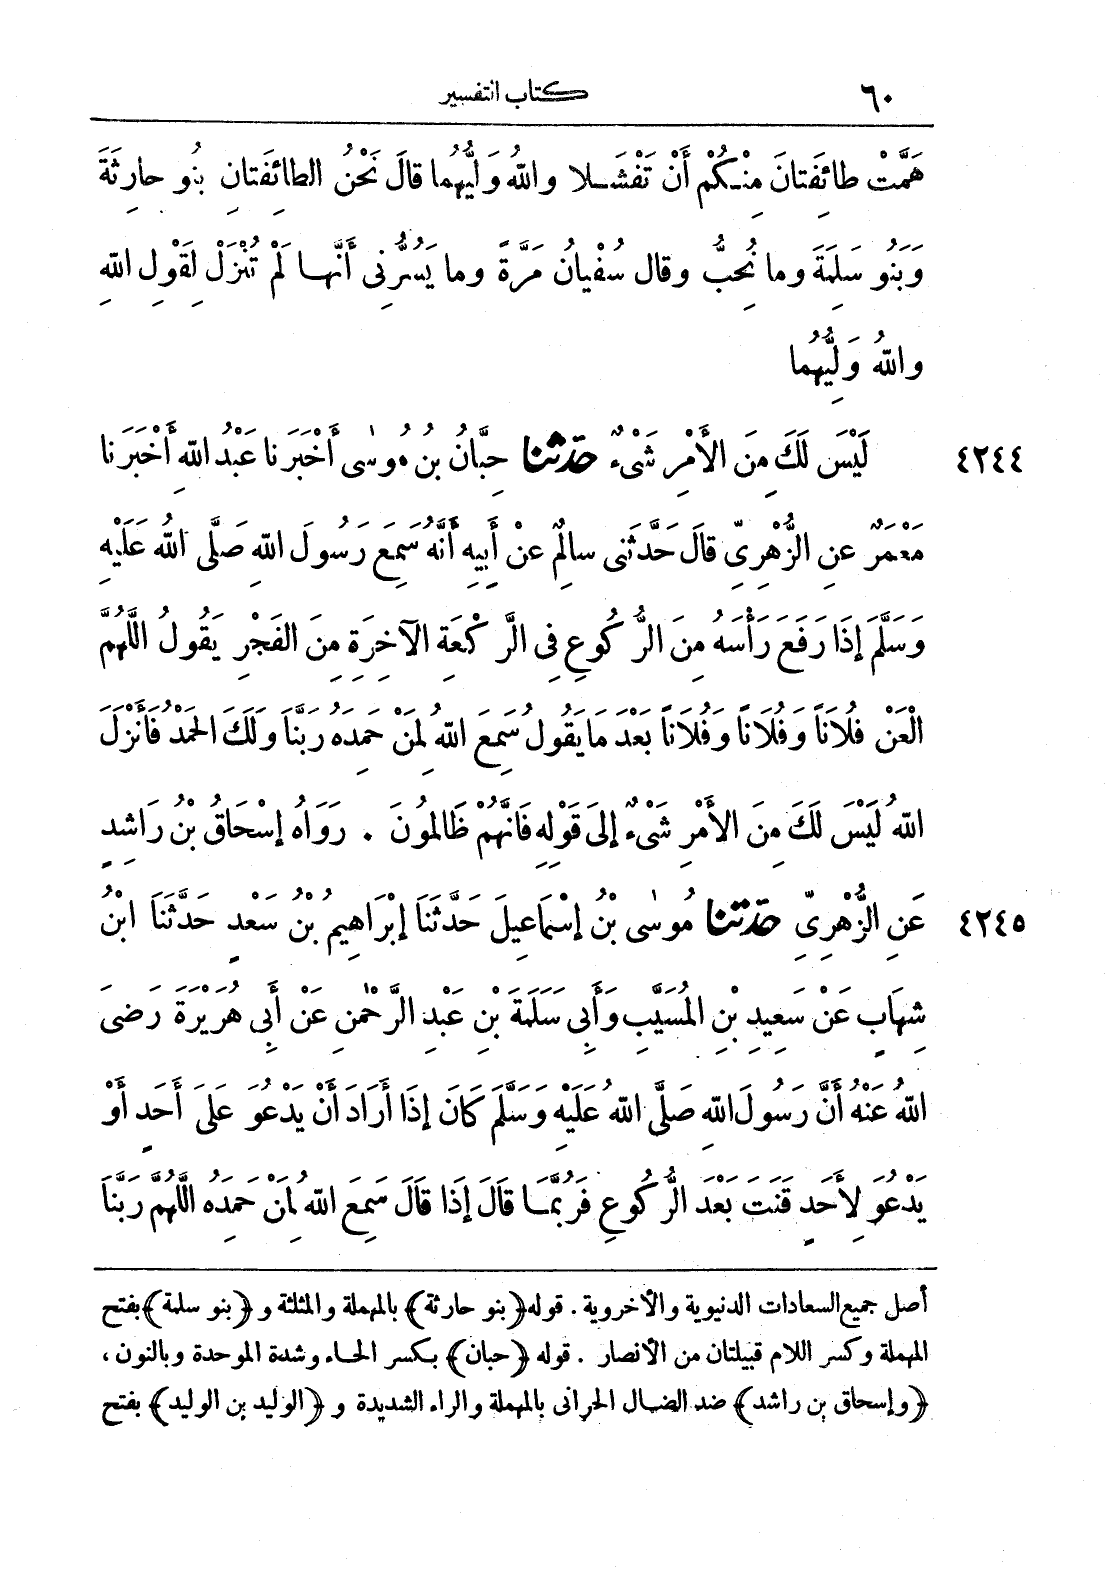 ٦٠ كتاب التفسير
هَمَّتْ طائِفَتانَ مِنْكُمْ أَنْ تَفْشَلا واللهُ وَلِيُّهُما قالَ نَحْنُ الطائِفَتانِ بنُو حارِثَةَ
وَبَنُو سَلِمَةَ وما نُحِبُّ وقال سُفْيانُ مَرَّةً وما يَسُرُّنِى أَنَّها لَمْ تُنْزَلْ لِقَوْلِ اللهِ
واللهُ وَلِيُّهُما
٤٢٤٤ لَيْسَ لَكَ مِنَ الأَمْرِ شَىْءٌ حدّثنا حِبَّانُ بنُ مُوسٰى أَخْبَرَنا عَبْدُ اللهِ أَخْبَرَنا
مَعْمَرٌ عنِ الزُّهْرِىِّ قالَ حَدَّثَنى سالِمٌ عنْ أَبِيهِ أَنَّهُ سَمِعَ رَسُولَ اللهِ صَلَّى اللهُ عَلَيْهِ
وَسَلَّمَ إذَا رَفَعَ رَأْسَهُ مِنَ الرُّكُوعِ فِى الرَّكْعَةِ الآخِرَةِ مِنَ الفَجْرِ يَقُولُ اللَّهُمَّ
الْعَنْ فُلَانَاً وَفُلَانَاً وَفُلَاناً بَعْدَ مَا يَقُولُ سَمِعَ اللهُ لِمَنْ حَمِدَهُ رَبَّنَا وَلَكَ الحَمْدُ فَأَنْزَلَ
اللهُ لَيْسَ لَكَ مِنَ الأَمْرِ شَىْءٌ إلَى قَوْلِهِ فَانَّهُمْ ظَالِمُونَ . رَوَاهُ إسْحَاقُ بنُ رَاشِدٍ
٤٢٤٥ عَنِ الزُّهْرِىِّ حدّثنا مُوسٰى بْنُ إسْمَاعِيلَ حَدَّثَنَا إبْرَاهِيمُ بْنُ سَعْدٍ حَدَّثَنَا ابْنُ
شِهَابٍ عَنْ سَعِيدِ بْنِ المُسَيَّبِ وَأَبِى سَلَمَةَ بْنِ عَبْدِ الرَّحْمٰنِ عَنْ أَبِى هُرَيْرَةَ رَضِىَ
اللهُ عَنْهُ أَنَّ رَسُولَ اللهِ صَلَّى اللهُ عَلَيْهِ وَسَلَّمَ كَانَ إذَا أَرَادَ أَنْ يَدْعُوَ عَلَى أَحَدٍ أَوْ
يَدْعُوَ لِأَحَدٍ قَنَتَ بَعْدَ الرُّكُوعِ فَرُبَّمَا قَالَ إذَا قَالَ سَمِعَ اللهُ لِمَنْ حَمِدَهُ اللَّهُمَّ رَبَّنَا
أصل جميع السعادات الدنيوية والأخروية. قوله ﴿بنو حارثة﴾ بالمهملة والمثلثة و ﴿بنو سلمة﴾ بفتح
المهملة وكسر اللام قبيلتان من الأنصار . قوله ﴿حبان﴾ بكسر الحاء وشدة الموحدة وبالنون،
﴿وإسحاق بن راشد﴾ ضد الضال الحرانى بالمهملة والراء الشديدة و ﴿الوليد بن الوليد﴾ بفتح